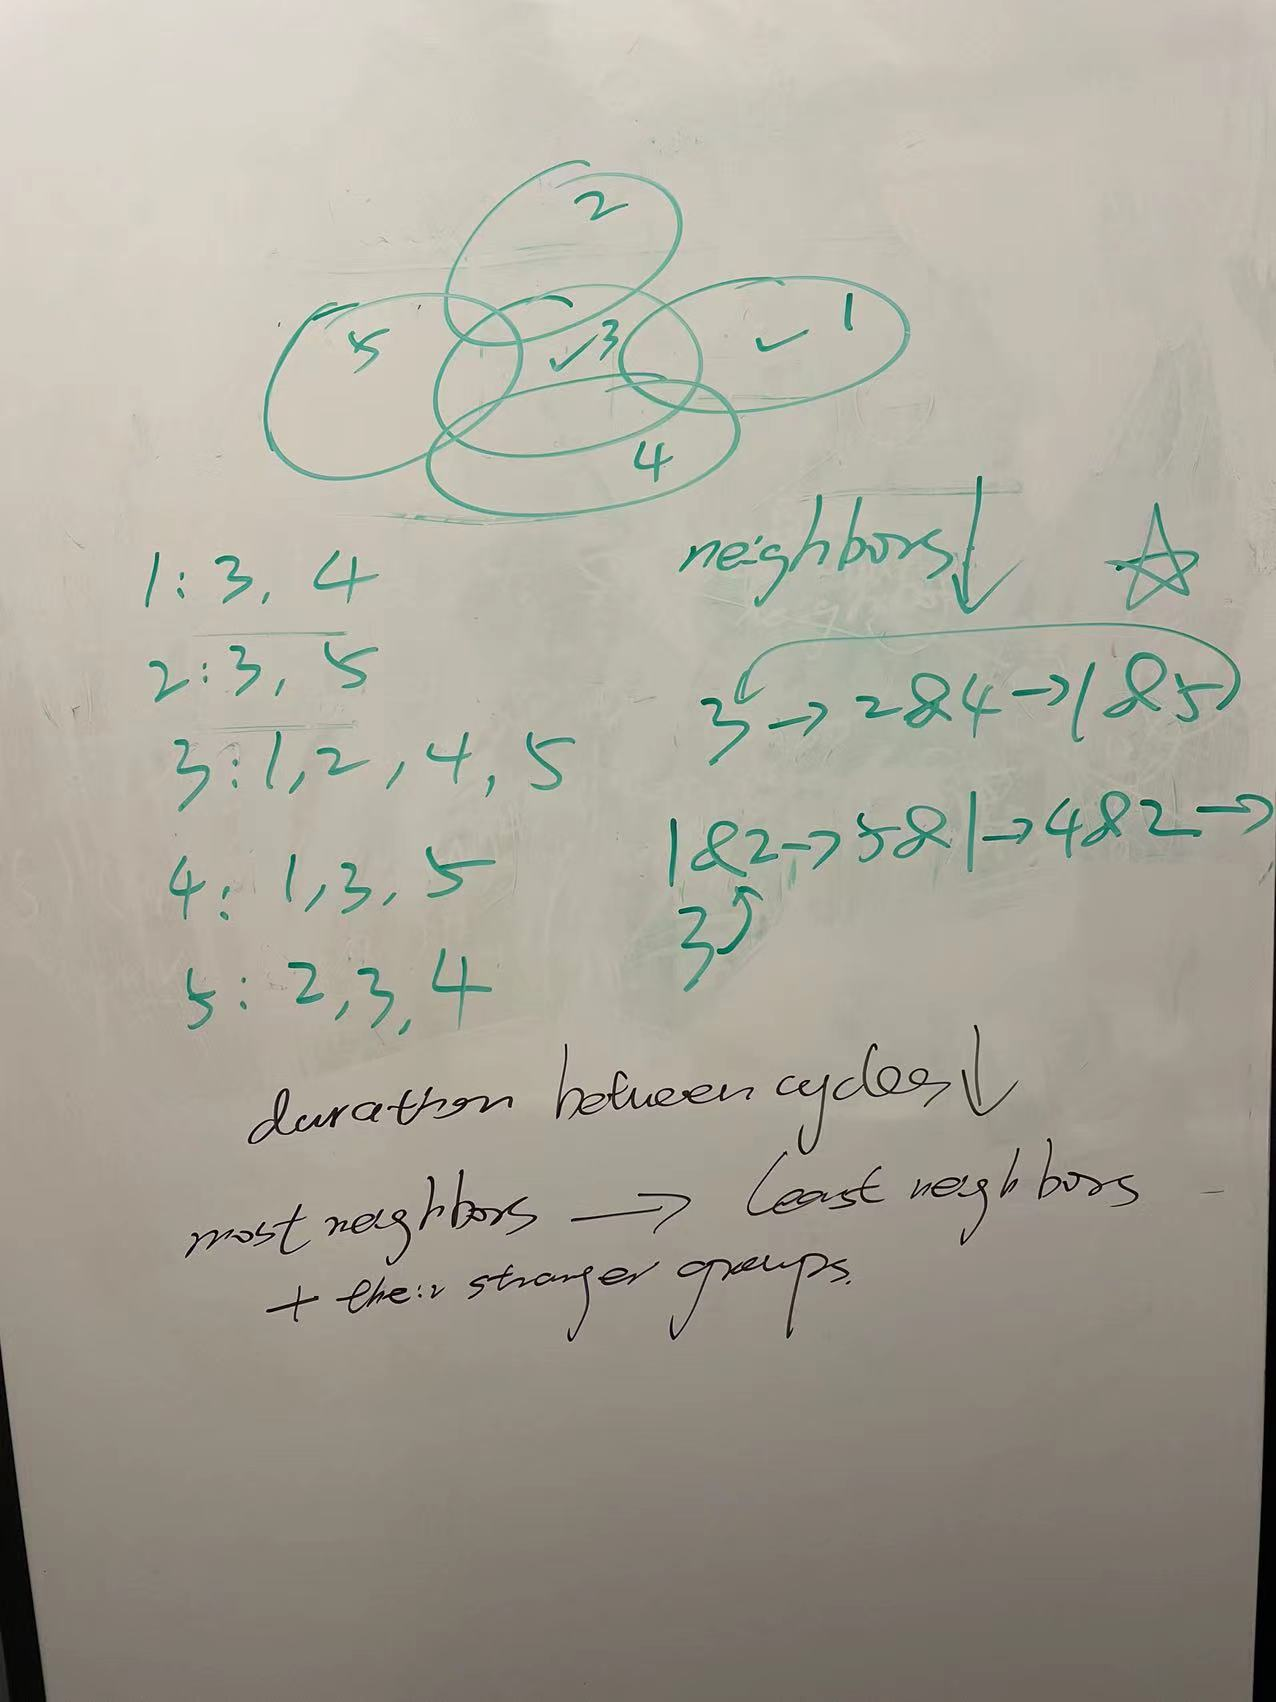 2
5
✓3
✓ 1
4
neighbors↓ ☆
1: 3, 4
2: 3, 5
3: 1, 2, 4, 5
4: 1, 3, 5
5: 2, 3, 4
3 → 2&4 → 1&5
1&2 → 5&1 → 4&2 →
3
duration between cycles↓
most neighbors → least neighbors
+ their stranger groups.